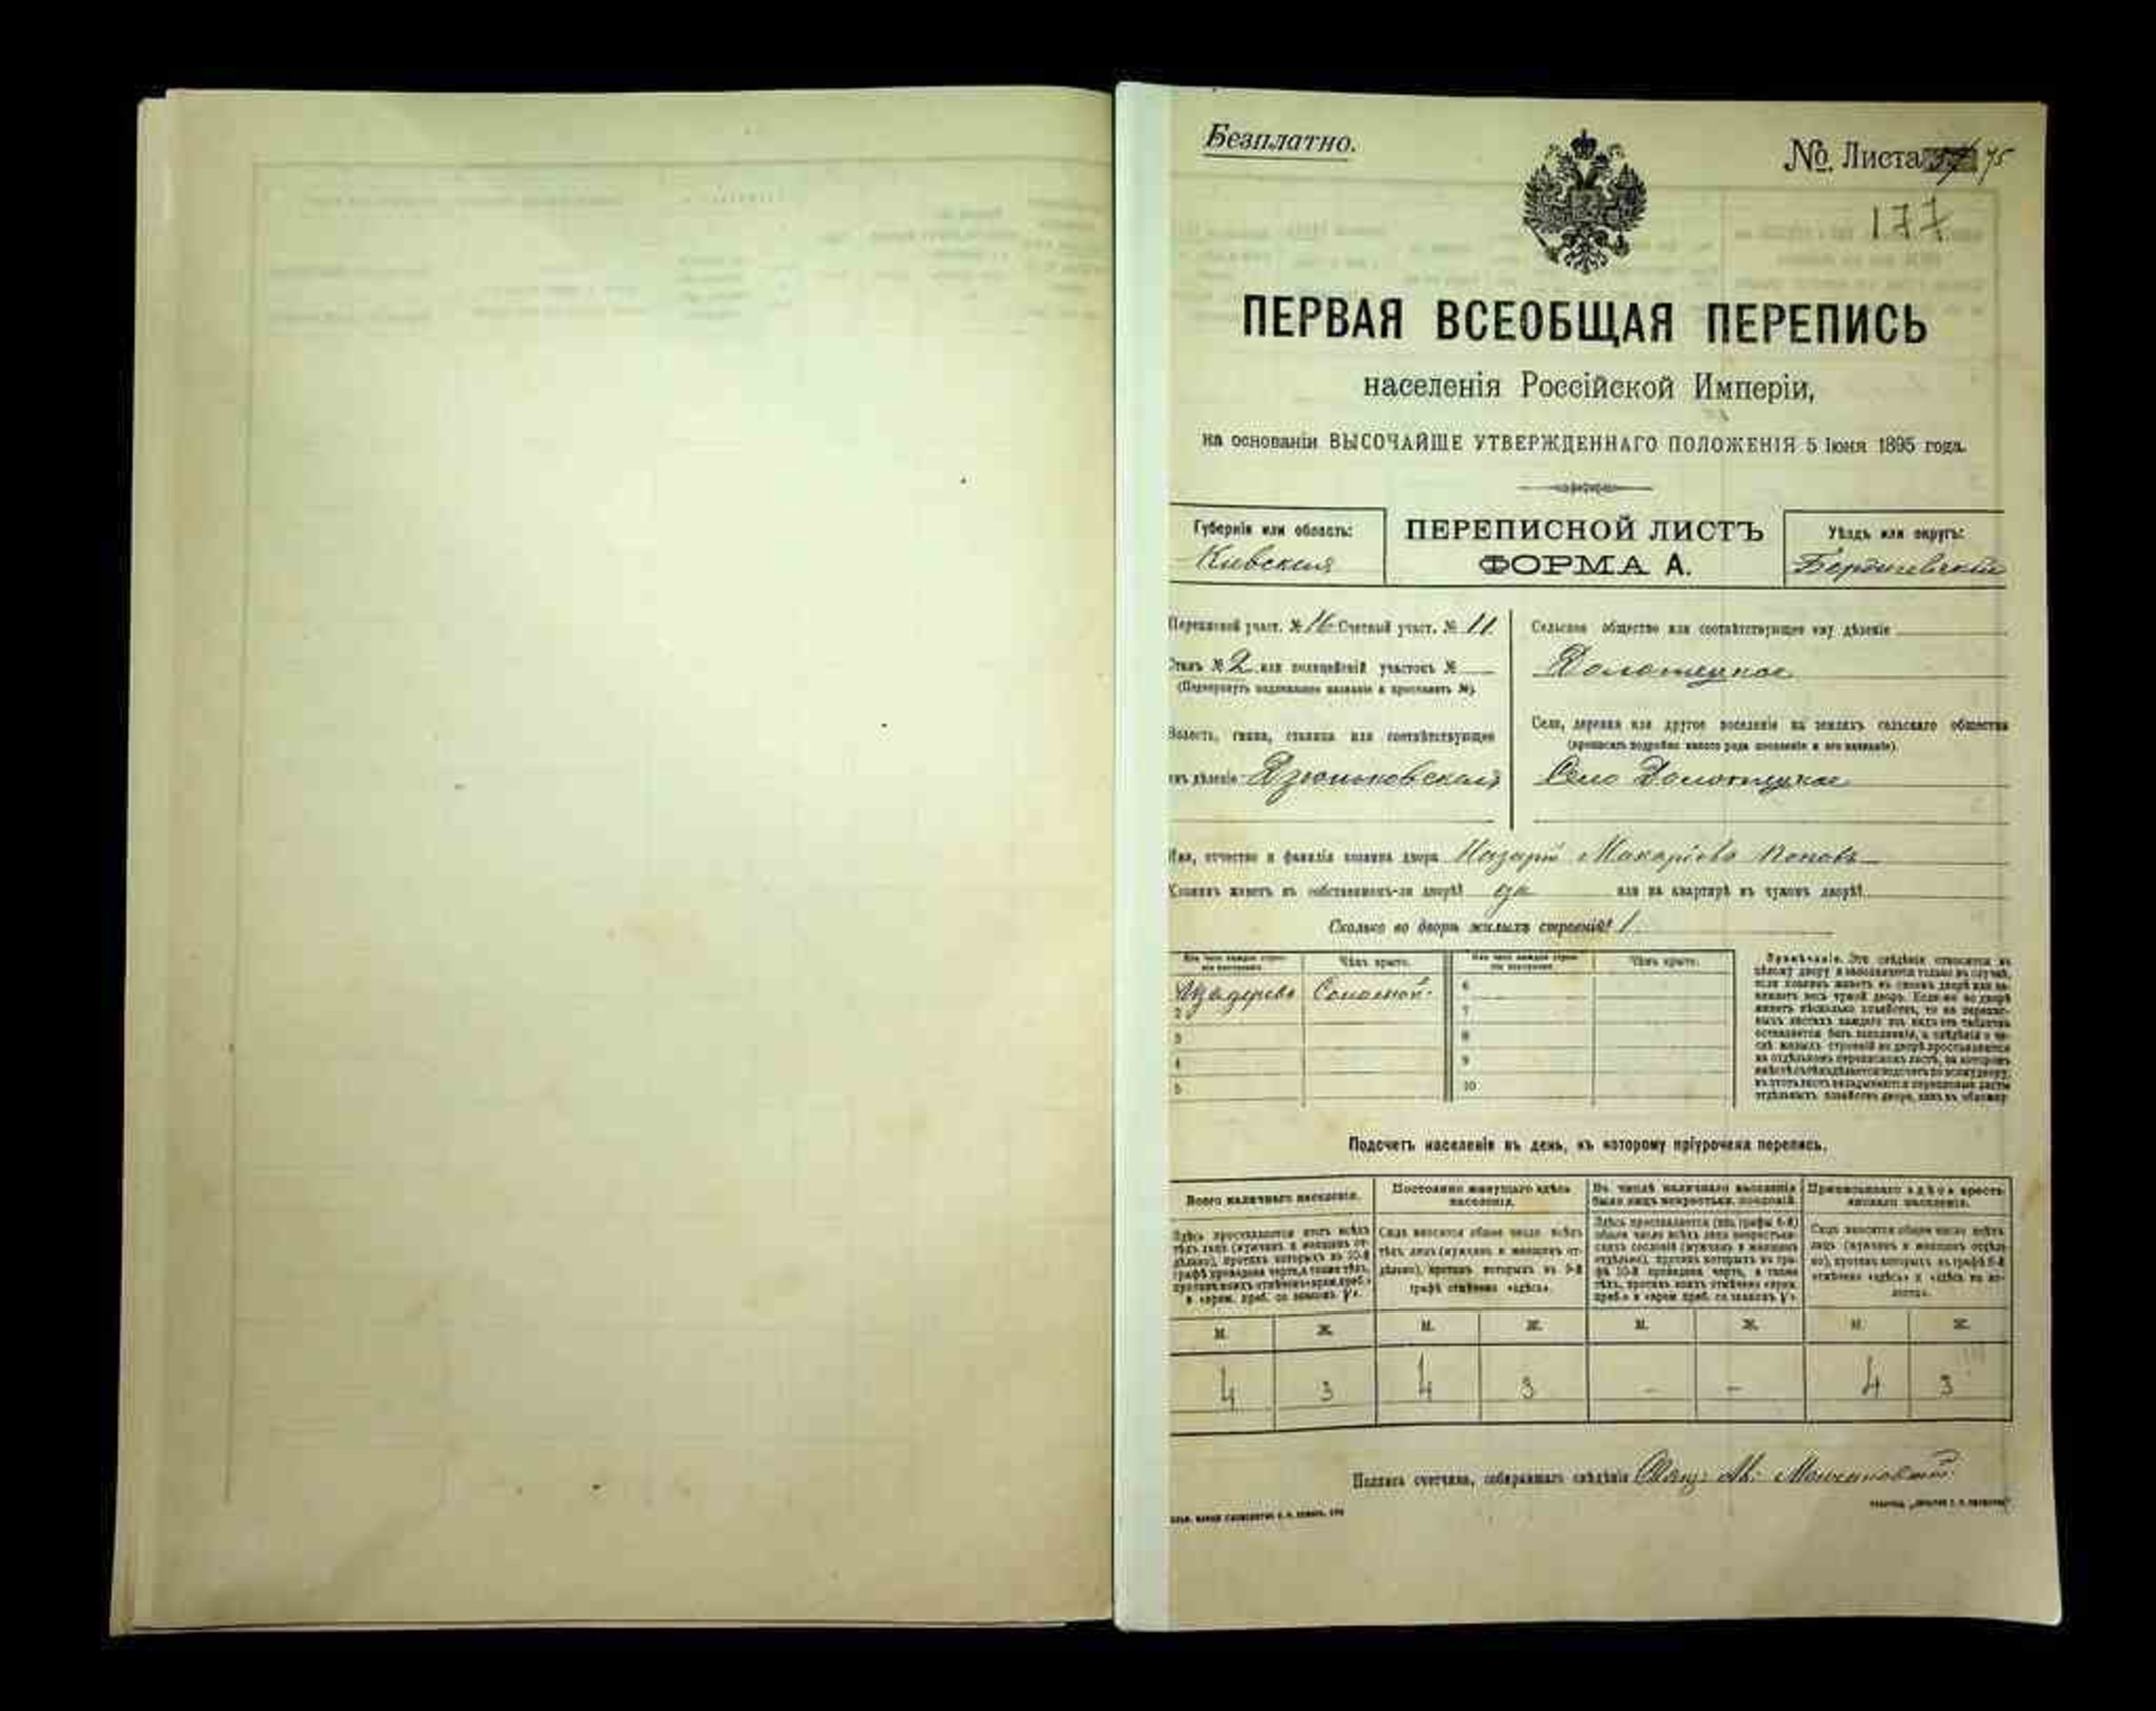 Безплатно.
№ Листа 75
177
ПЕРВАЯ ВСЕОБЩАЯ ПЕРЕПИСЬ
населенія Россійской Имперіи,
на основаніи ВЫСОЧАЙШЕ УТВЕРЖДЕННАГО ПОЛОЖЕНІЯ 5 Іюня 1895 года.
Губернія или область:
Киевская
ПЕРЕПИСНОЙ ЛИСТЪ
ФОРМА А.
Уѣздъ или округъ:
Бердичевскій
Переписной участ. № 16 Счетный участ. № 11
Станъ № 2 или полицейскій участокъ №
(Подчеркнуть надлежащее названіе и проставить №).
Волость, гмина, станица или соотвѣтствующее
имъ дѣленіе Дзюньковская
Сельское общество или соотвѣтствующее ему дѣленіе
Долотецкое
Село, деревня или другое поселеніе на земляхъ сельскаго общества
(прописать подробно какого рода поселеніе и его названіе).
Село Долотецкое
Имя, отчество и фамилія хозяина двора Назарій Макаріевъ Поповъ
Хозяинъ живетъ въ собственномъ-ли дворѣ? да или на квартирѣ въ чужомъ дворѣ?
Сколько во дворѣ жилыхъ строеній? 1
Изъ чего каждое строеніе построено.
Чѣмъ крыто.
Изъ чего каждое строеніе построено.
Чѣмъ крыто.
Изъ дерева Соломой.
6
2
7
3
8
4
9
5
10
Примѣчаніе. Эти свѣдѣнія относятся къ
цѣлому двору и заполняются только въ случаѣ,
если хозяинъ живетъ въ своемъ дворѣ или за-
нимаетъ весь чужой дворъ. Если-же во дворѣ
живетъ нѣсколько хозяйствъ, то на перепис-
ныхъ листахъ каждаго изъ нихъ эта табличка
Подсчетъ населенія въ день, къ которому пріурочена перепись.
Всего наличнаго населенія.
Здѣсь проставляется итогъ всѣхъ
тѣхъ лицъ (мужчинъ и женщинъ от-
дѣльно), противъ которыхъ въ 10-й
графѣ проведена черта, а также тѣхъ,
противъ коихъ отмѣчено «врем. преб.»
Постоянно живущаго здѣсь
населенія.
Сюда вносится общее число всѣхъ
тѣхъ лицъ (мужчинъ и женщинъ от-
дѣльно), противъ которыхъ въ 9-й
графѣ отмѣчено «здѣсь».
Въ числѣ наличнаго населенія
было лицъ некрестьян. сословій.
Здѣсь проставляется (изъ графы 6-й)
общее число всѣхъ лицъ некрестьян-
скихъ сословій (мужчинъ и женщинъ
отдѣльно), противъ которыхъ въ гра-
фѣ 10-й проведена черта, а также
тѣхъ, противъ коихъ отмѣчено «врем.
Приписаннаго здѣсь кресть-
янскаго населенія.
Сюда вносится общее число всѣхъ
лицъ (мужчинъ и женщинъ отдѣль-
но), противъ которыхъ въ графѣ 8-й
отмѣчено «здѣсь» и «здѣсь въ во-
лости».
М. Ж. М. Ж. М. Ж. М. Ж.
4 3 4 3 - - 4 3
Подпись счетчика, собиравшаго свѣдѣнія Свящ.